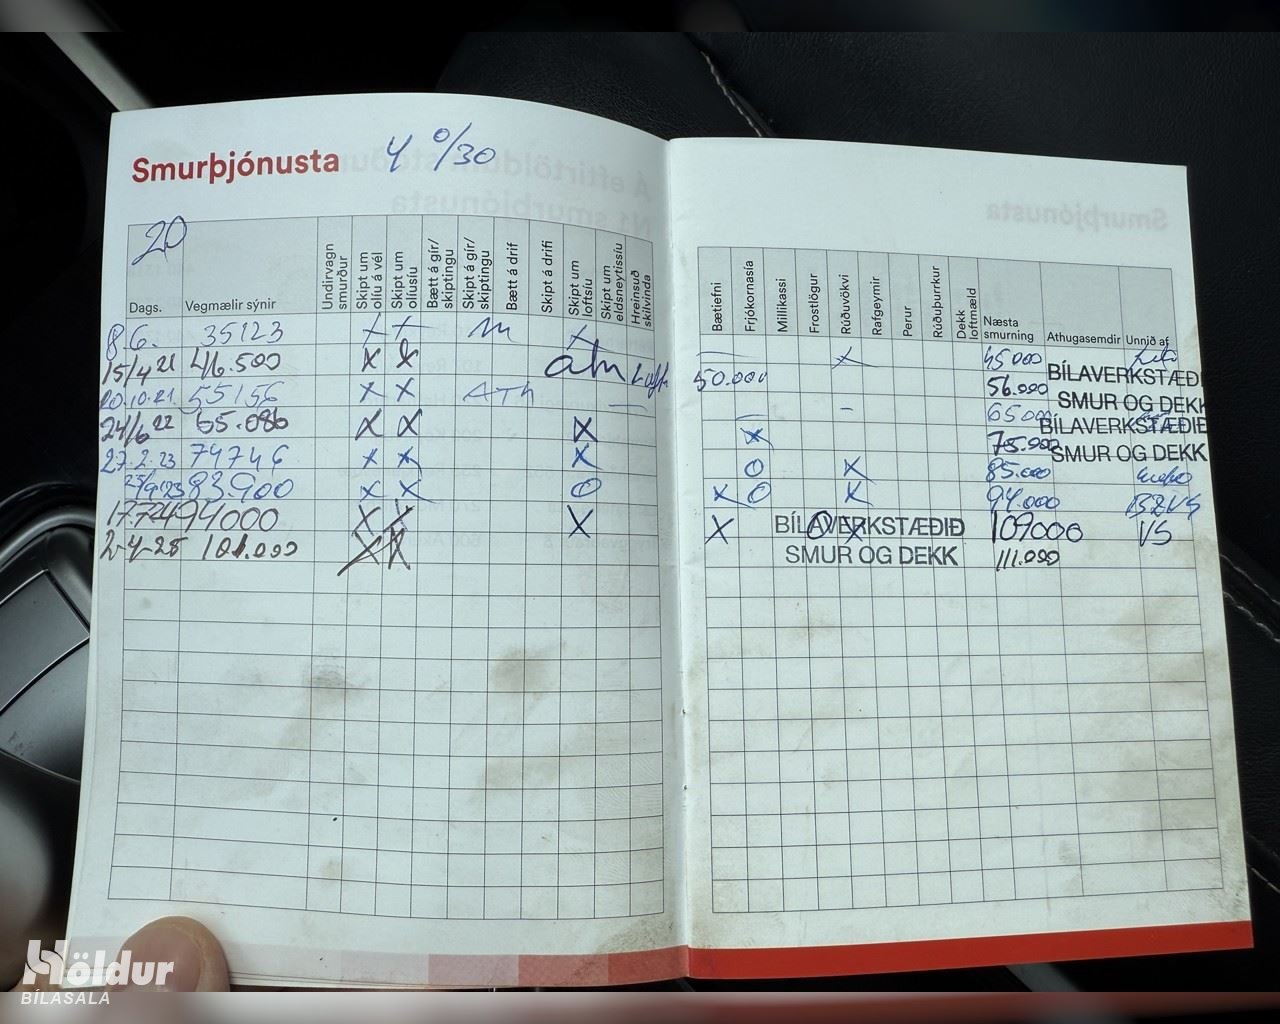 Smurþjónusta 4 0/30
20
Dags.
Vegmælir sýnir
Undirvagn smurður
Skipt um olíu á vél
Skipt um olíusíu
Bætt á gír/skiptingu
Skipt á gír/skiptingu
Bætt á drif
Skipt á drifi
Skipt um loftsíu
Skipt um eldsneytissíu
Hreinsuð skilvinda
8 6. 35123 x x x
15/4 21 46.500 x x ath
20.10.21 55156 x x ATH
24/6 22 65.086 x x x
27.2.23 74746 x x x
83.900 x x o
94000 x x x
2-4-25 101.000 x x
Bætiefni
Frjókornasía
Millikassi
Frostlögur
Rúðuvökvi
Rafgeymir
Perur
Rúðuþurrkur
Dekk loftmæld
Næsta smurning
Athugasemdir
Unnið af
x 45000
50.000 56.000 BÍLAVERKSTÆÐI
SMUR OG DEKK
- 65000 BÍLAVERKSTÆÐIÐ
x 75.000 SMUR OG DEKK
o x 85.000
x o x 94.000
x BÍLAVERKSTÆÐIÐ o x 109000 VS
SMUR OG DEKK 111.000
Höldur
BÍLASALA